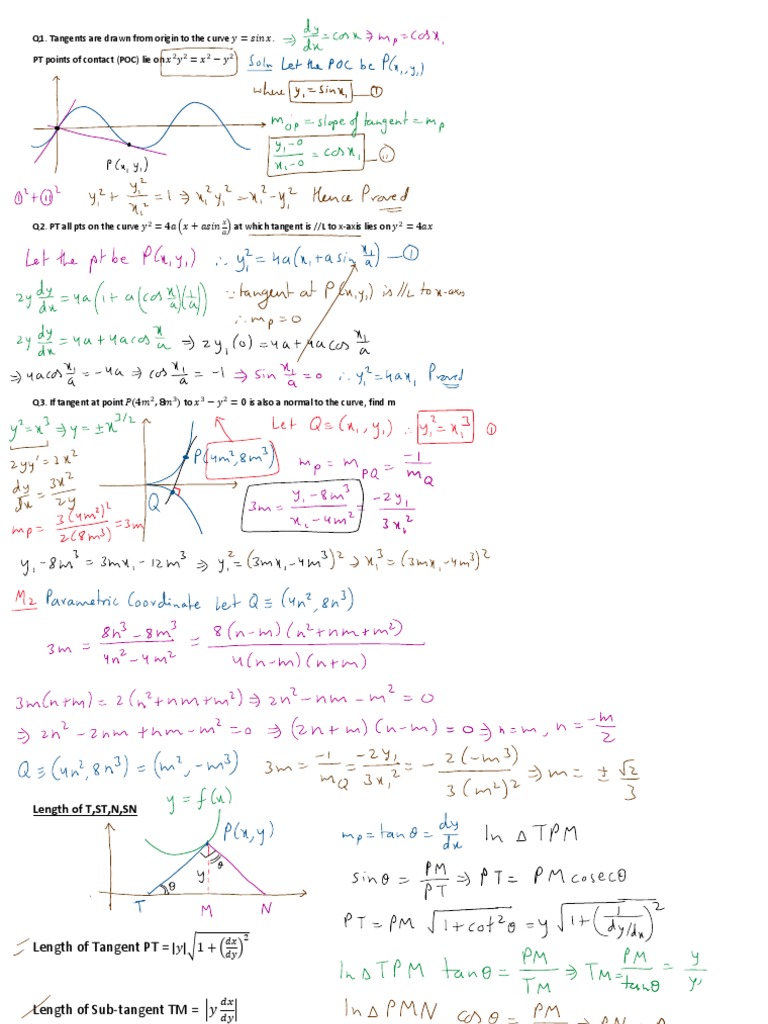 Q1. Tangents are drawn from origin to the curve y = sinx. ⇒ dy/dx = cosx ⇒ m_p = cosx₁
PT points of contact (POC) lie on x²y² = x² − y² Soln Let the POC be P(x₁, y₁)
where y₁ = sinx₁ —(I)
m_OP = slope of tangent = m_p
(y₁−0)/(x₁−0) = cosx₁ —(II)
P(x₁, y₁)
(I)² + (II)² y₁² + y₁²/x₁² = 1 ⇒ x₁²y₁² = x₁² − y₁² Hence Proved
Q2. PT all pts on the curve y² = 4a(x + asin x/a) at which tangent is //L to x-axis lies on y² = 4ax
Let the pt be P(x₁, y₁) ∴ y₁² = 4a(x₁ + a sin x₁/a) —(1)
2y dy/dx = 4a(1 + a(cos x/a)(1/a)) ∵ tangent at P(x₁, y₁) is //L to x-axis
∴ m_p = 0
2y dy/dx = 4a + 4a cos x/a ⇒ 2y₁(0) = 4a + 4a cos x₁/a
⇒ 4a cos x₁/a = −4a ⇒ cos x₁/a = −1 ⇒ sin x₁/a = 0 ∴ y₁² = 4ax₁ Proved
Q3. If tangent at point P(4m², 8m³) to x³ − y² = 0 is also a normal to the curve, find m
y² = x³ ⇒ y = ± x^(3/2) Let Q ≡ (x₁, y₁) ∴ y₁² = x₁³ (1)
2yy' = 3x² P(4m², 8m³) m_p = m_PQ = −1/m_Q
dy/dx = 3x²/2y Q 3m = (y₁ − 8m³)/(x₁ − 4m²) = −2y₁/3x₁²
m_p = 3(4m²)²/2(8m³) = 3m
y₁ − 8m³ = 3mx₁ − 12m³ ⇒ y₁² = (3mx₁ − 4m³)² ⇒ x₁³ = (3mx₁ − 4m³)²
M2 Parametric Coordinate Let Q ≡ (4n², 8n³)
3m = (8n³ − 8m³)/(4n² − 4m²) = 8(n−m)(n²+nm+m²)/4(n−m)(n+m)
3m(n+m) = 2(n²+nm+m²) ⇒ 2n² − nm − m² = 0
⇒ 2n² − 2nm + nm − m² = 0 ⇒ (2n+m)(n−m) = 0 ⇒ n = m, n = −m/2
Q ≡ (4n², 8n³) = (m², −m³) 3m = −1/m_Q = −2y₁/3x₁² = −2(−m³)/3(m²)² ⇒ m = ± √2/3
Length of T,ST,N,SN y = f(x)
P(x, y) m_p = tanθ = dy/dx In △ TPM
θ y θ sinθ = PM/PT ⇒ PT = PM cosecθ
T M N
PT = PM √(1+cot²θ) = y √(1 + (1/(dy/dx))²)
Length of Tangent PT = |y|√(1 + (dx/dy)²)
In △ TPM tanθ = PM/TM ⇒ TM = PM/tanθ = y/y'
Length of Sub-tangent TM = |y dx/dy|
In △ PMN cosθ = PM